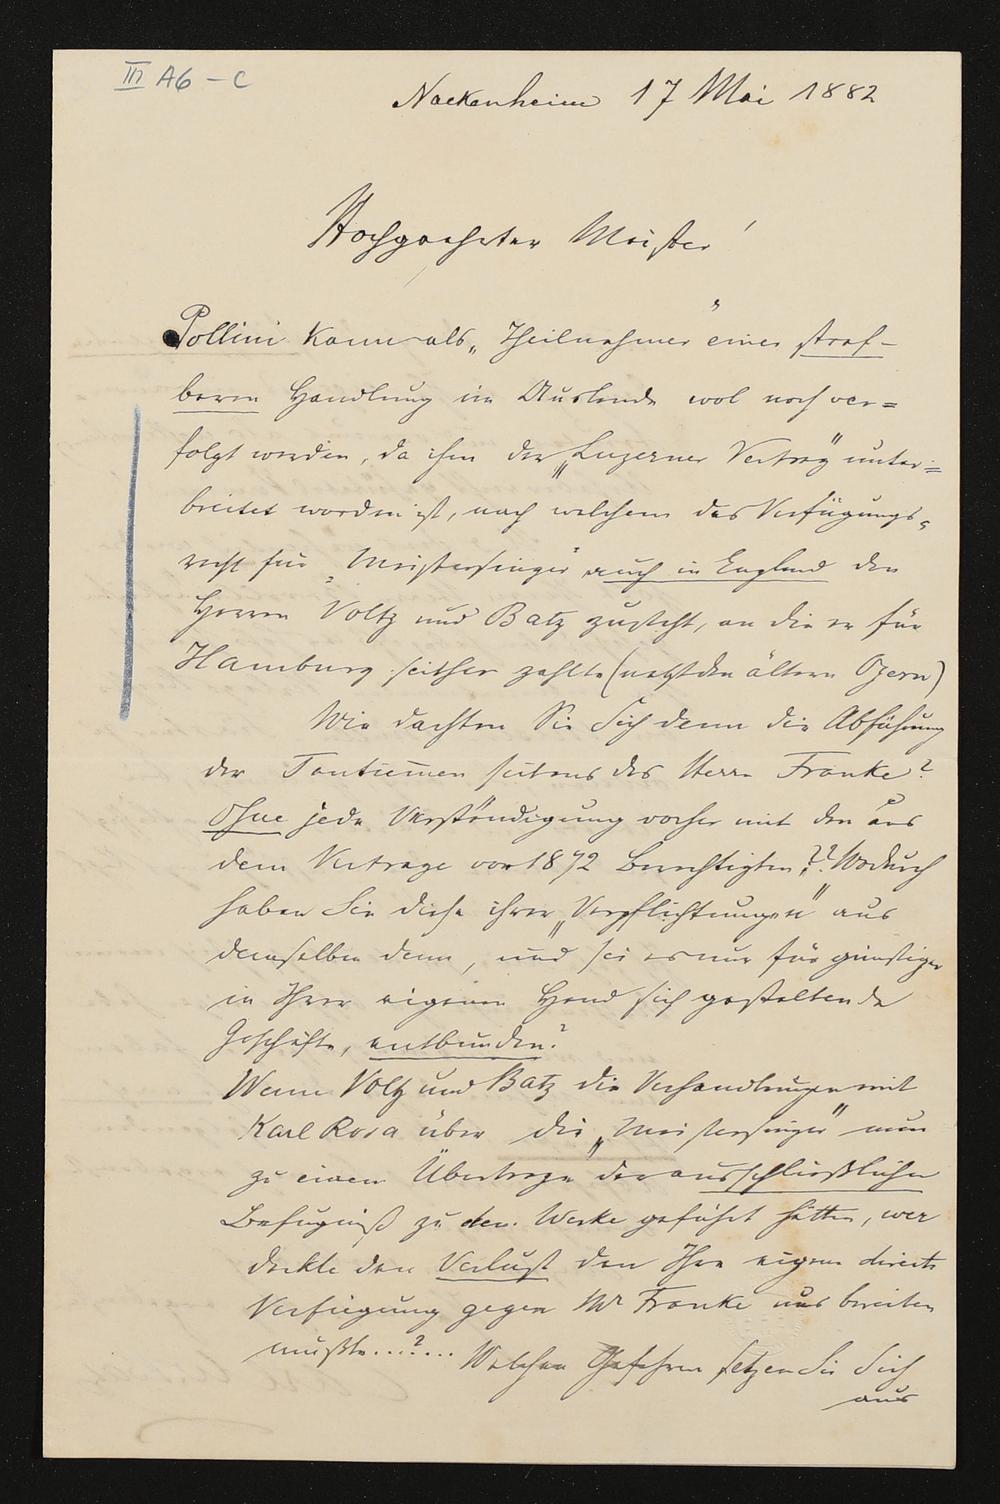 III A6 – C
Nackenheim 17 Mai 1882
Hochgeehrter Meister!
Pollini kann als „Theilnehmer" einer straf-
baren Handlung im Auslande wol noch ver=
folgt werden, da ihm der „Luzerner Vertrag" unter=
breitet worden ist, nach welchem das Verfügungs=
recht für „Meistersinger" auch in England den
Herren Voltz und Batz zusteht, an die er für
Hamburg seither zahlte (nebst den ältern Opern)
Wie dachten Sie Sich denn die Abführung
der Tantièmen seitens des Herrn Franke?
Ohne jede Verständigung vorher mit den aus
dem Vertrage von 1872 Berechtigten?? Wodurch
haben Sie diese ihrer „Verpflichtungen" aus
demselben denn, und sei es nur für günstiger
in Ihrer eigenen Hand sich gestaltende
Geschäfte, entbunden?
Wenn Voltz und Batz die Verhandlungen mit
Karl Rosa über die „Meistersinger" nun
zu einem Übertrage der ausschließlichen
Befugniß zu dem Werke geführt hätten, wer
deckte den Verlust den Ihre eigene directe
Verfügung gegen Mr Franke uns bereiten
mußte...?... Welchen Gefahren setzen Sie Sich
aus